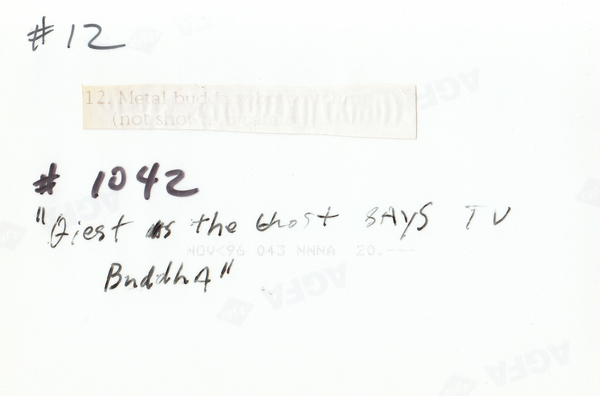 #12
12. Metal bud
(not sho
# 1042
"Qiest is the Ghost SAYS TV
NOV<96 043 NNNA 20.---
BuddhA"
AGFA
AGFA
AGFA